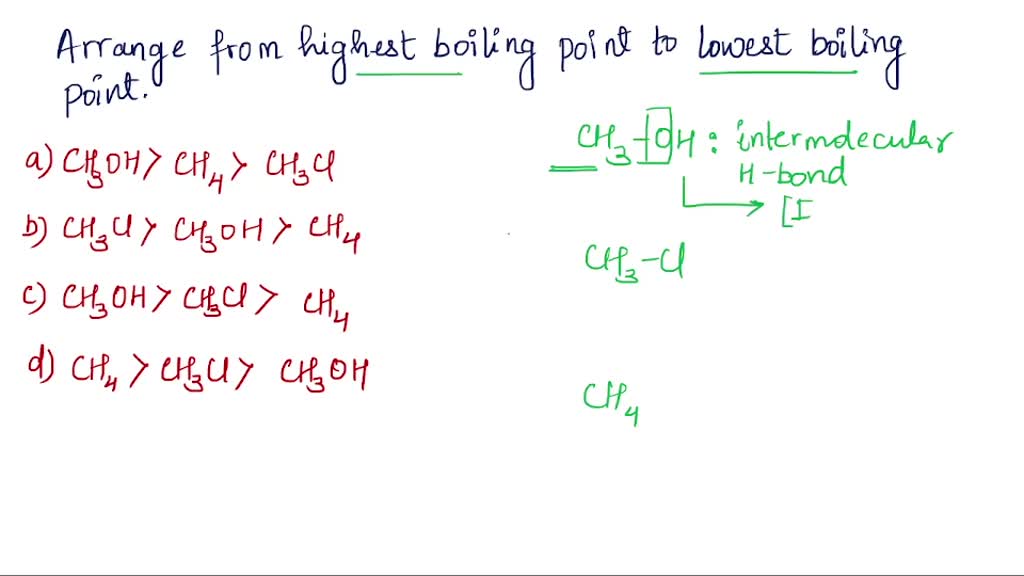 Arrange from highest boiling point to lowest boiling
point.
a) CH₃OH > CH₄ > CH₃Cl
b) CH₃Cl > CH₃OH > CH₄
c) CH₃OH > CH₃Cl > CH₄
d) CH₄ > CH₃Cl > CH₃OH
CH₃-OH : intermolecular
H-bond
[I
CH₃-Cl
CH₄